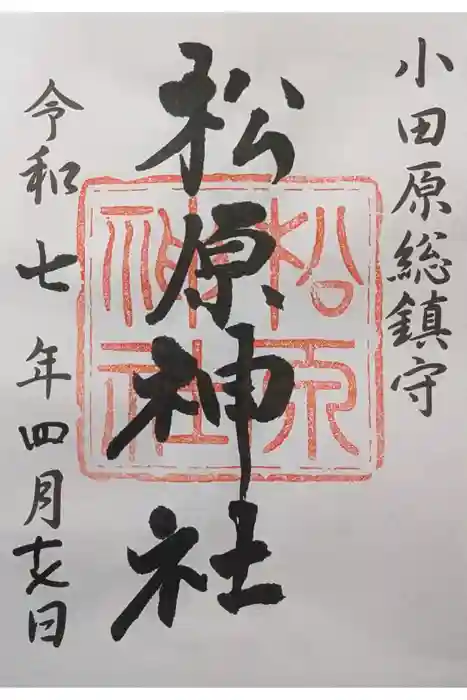 小田原総鎮守
松原神社
松原
神社
令和七年四月日